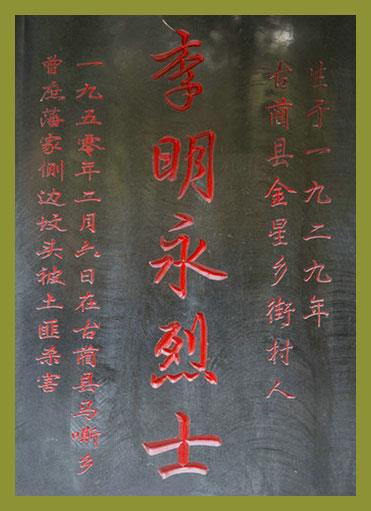 生于一九二九年
古蔺县金星乡街村人
李明永烈士
一九五零年二月六日在古蔺县马嘶乡
曾庶藩家侧边坟头被土匪杀害